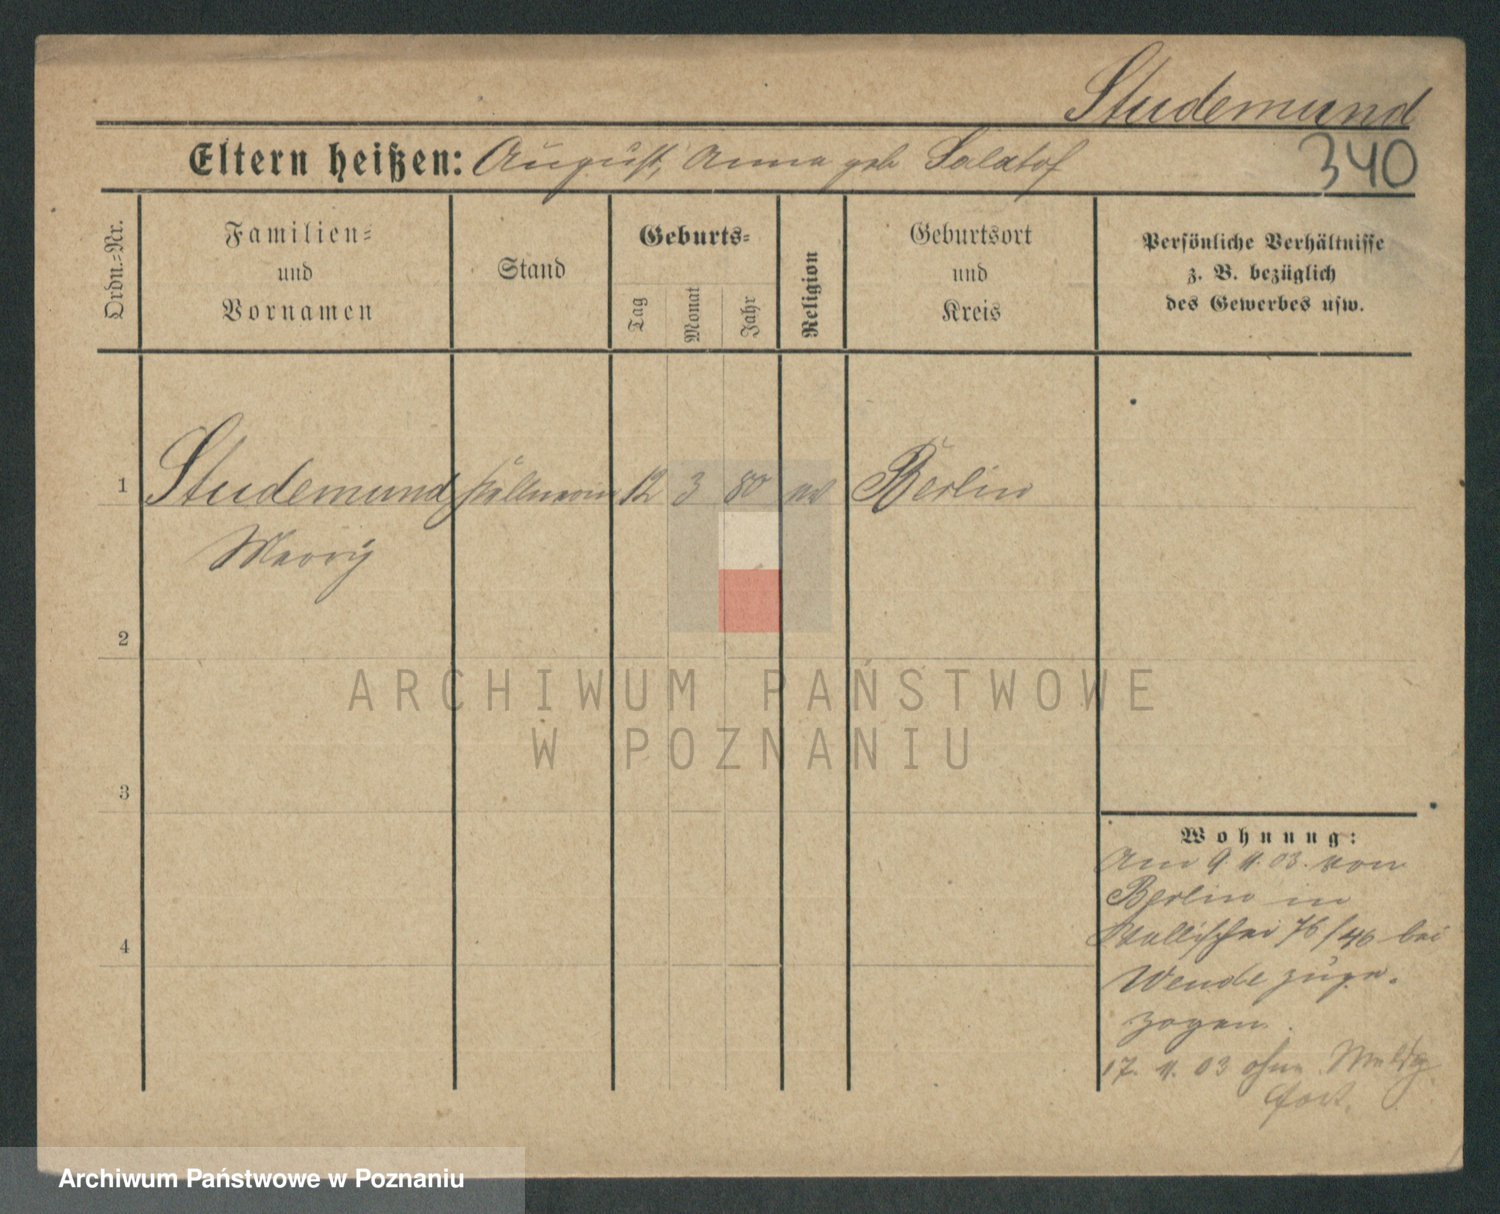 Studemund
Eltern heißen: August, Anna geb Salatof
340
Ordn.-Nr.
Familien-
und
Vornamen
Stand
Geburts-
Tag
Monat
Jahr
Religion
Geburtsort
und
Kreis
Persönliche Verhältnisse
z. B. bezüglich
des Gewerbes usw.
1 Studemund Kellnerin 12 3 80 ev Berlin
Marry
2
3
4
Wohnung:
Am 9. 11. 03. von
Berlin in
Wallischei 76/46 bei
Wende zuge-
zogen.
17. 11. 03 ohne Meldg
fort.
ARCHIWUM PAŃSTWOWE
W POZNANIU
Archiwum Państwowe w Poznaniu